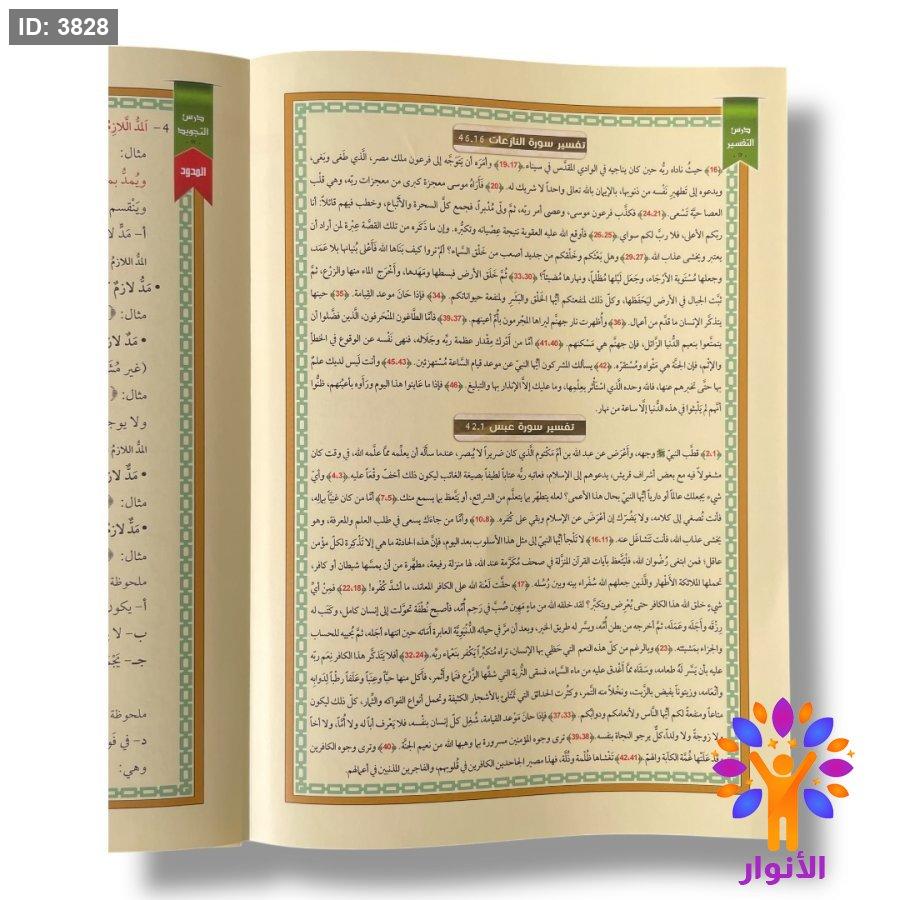 ID: 3828
درس
التفسير
تفسير سورة النازعات 46.16
﴿16﴾ حيثُ ناداه ربُّه حين كان يناجيه في الوادي المقدَّس في سيناء. ﴿19.17﴾ وأمَرَه أن يتَوَجَّه إلى فرعون ملك مصر، الَّذي طَغى وبَغى،
ويدعوه إلى تطهيرِ نَفْسه من ذنوبها، بالإيمان بالله تعالى واحداً لا شريك له. ﴿20﴾ فأرَاهُ موسى معجزة كبرى من معجزات ربِّه، وهي قلْب
العصا حيَّة تَسْعى. ﴿24.21﴾ فكذَّب فرعون موسى، وعصى أمر ربِّه، ثمَّ ولَّى مُدْبراً، فجمع كلَّ السحرة والأتْباع، وخطب فيهم قائلاً: أنا
ربُّكم الأعلى، فلا ربَّ لكم سواي. ﴿26.25﴾ فأوقع الله عليه العقوبة نتيجة عِصْيانه وتكبُّره. وإن ما ذَكَره من تلك القصَّة عِبْرة لمن أراد أن
يعتبر ويخشى عذاب الله. ﴿29.27﴾ وهل بَعْثكم وخَلْقكم من جديد أصعب من خَلْق السَّماء؟ ألمْ تروا كيف بَنَاها الله فأعْلى بُنيانها بلا عَمَد،
وجعلها مُسْتَوية الأرْجَاء، وجَعَل لَيْلها مُظْلماً، ونهارها مُضيئاً؟ ﴿33.30﴾ ثمَّ خَلَق الأرض فبسطها ومَهَدها، وأخْرَج الماء منها والزرْع، ثمَّ
ثبَّت الجبال في الأرض ليَحْفَظها، وكلُّ ذلك لمنفعتكم أيُّها الخَلْق والبشَر ولمنفعة حيواناتكم. ﴿34﴾ فإذا حَانَ موعد القيامة. ﴿35﴾ حينها
يتذكَّر الإنسان ما قدَّم من أعمال. ﴿36﴾ وأُظهرت نار جهنَّم ليراها المجْرمون بأُمِّ أعينهم. ﴿39.37﴾ فأمَّا الطَّاغون المنْحَرفون، الَّذين فضَّلوا أن
يتمتَّعوا بنعيم الدُّنيا الزَّائل، فإن جهنَّم هي مَسْكنهم. ﴿41.40﴾ أمَّا من أدْرك مِقْدار عظمة ربِّه وجَلَاله، فنهى نَفْسه عن الوقوع في الخطأ
والإثْم، فإن الجنَّة هي مَثْواه ومُسْتقرّه. ﴿42﴾ يسألك المشركون أيُّها النبيّ عن موعد قيام السَّاعة مُستهزئين. ﴿45.43﴾ وأنت لَيْس لديك علمٌ
بها حتَّى تخبرهم عنها، فالله وحده الَّذي اسْتأثَر بعِلْمِها، وما عليك إلاَّ الإنذار بها والتبليغ. ﴿46﴾ فإذا ما عَاينوا هذا اليوم ورَأوه بأعيُنِهم، ظنُّوا
أنَّهم لم يَلْبَثوا في هذه الدُّنيا إلَّا ساعة من نهار.
تفسير سورة عبس 42.1
﴿2.1﴾ قطَّب النبيّ ﷺ وجهه، وأَعْرَض عن عبد الله بن أمِّ مَكْتوم الَّذي كان ضَريراً لا يُبصر، عندما سأله أن يعلِّمه ممَّا علَّمه الله، في وقت كان
مشغولاً فيه مع بعض أشراف قريش، يدعوهم إلى الإسلام، فعاتبه ربُّه عتاباً لطيفاً بصيغة الغائب ليكون ذلك أخفَّ وقْعَاً عليه. ﴿4.3﴾ وأيّ
شيء يجعلك عالماً أو دارياً أيُّها النبيّ بحال هذا الأعمى؟ لعله يتطهَّر بما يتعلَّم من الشرائع، أو يتَّعظ بما يسمع منك. ﴿7.5﴾ أمَّا من كان غنيَّاً بماله،
فأنت تُصغي إلى كلامه، ولا يَضُرّك إن أعْرَضَ عن الإسلام وبقي على كُفْره. ﴿10.8﴾ وأمَّا من جاءَك يسعى في طلب العلم والمعرفة، وهو
يخشى عذاب الله، فأنت تَتَشاغل عنه. ﴿16.11﴾ لا تَلْجأ أيُّها النبيّ إلى مثل هذا الأسلوب بعد اليوم، فإنَّ هذه الحادثة ما هي إلا تَذْكِرة لكلِّ مؤمن
عاقل؛ فمن ابتغى رُضْوان الله، فلْيتَّعظ بآيات القرآن المنزَّلة في صحف مُكرَّمة عند الله، لها منزلة رفيعة، مطهَّرة من أن يمسَّها شيطان أو كافر،
تحملها الملائكة الأطْهار والَّذين جعلهم الله سُفَراء بينه وبين رُسُله. ﴿17﴾ حقَّت لَعْنة الله على الكافر المعاند، ما أشدَّ كُفْره! ﴿22.18﴾ فمِنْ أيِّ
شيءٍ خلق الله هذا الكافر حتى يُعْرض ويتكبَّر؟ لقد خلقه الله من ماءٍ مَهين صُبَّ في رَحِم أُمِّه، فأصبح نُطْفَة تحوَّلت إلى إنسان كامل، وكَتَب له
رِزْقه وأجَلَه وعَمَلَه، ثمَّ أخرجه من بطن أُمِّه، ويسَّر له طريق الخير، وبعد أن مرَّ في حياته الدُّنْيَوِيَّة العابرة أمَاته حين انتهاء أجَله، ثمَّ يُحييه للحساب
والجزاء بمَشيئته. ﴿23﴾ وبالرغم من كلِّ هذه النعم التي حَظِي بها الإنسان، تراه مُتكبِّراً يَكْفر بنَعْماء ربِّه. ﴿32.24﴾ أفلا يَتذكَّر هذا الكافر نِعَم ربِّه
عليه بأن يَسَّر لهُ طعامه، وسَقَاه ممَّا أغْدق عليه من ماء السَّماء، فسقى التُّربة التي شقَّها الزَّرْع فنَما وأثْمر، فأكل منها حَبَّاً وعِنَباً وعَلَفاً رطْباً لِدَوابِه
وأنْعَامه، وزيتوناً يفيض بالزَّيت، ونخْلاً منه الثَّمر، وكثُرت الحدائق التي تَمْتلئ بالأشجار الكثيفة وتحمل أنواع الفواكه والثِّمار، كلُّ ذلك ليكون
متاعاً ومنفعةً لكم أيُّها النَّاس ولأنعامكم ودوابِّكم. ﴿37.33﴾ فإذا حان مَوْعد القيامة، شُغِل كلُّ إنسان بنفْسه، فلا يَعْرف أباً له ولا أُمَّاً، ولا أخاً
ولا زوجةً ولا ولداً، كلٌّ يرجو النجاة بنفسه. ﴿39.38﴾ ترى وجوه المؤمنين مسرورة بما وهبها الله من نعيم الجنَّة. ﴿40﴾ وترى وجوه الكافرين
قد عَلَتْها غُمَّة الكآبة والهمّ. ﴿42.41﴾ تَغْشاها ظُلْمة وذُلَّة، فهذا مصير الجاحدين الكافرين في قُلوبهم، والفاجرين المذنبين في أعمالهم.
درس
التجويد
المدود
4- المَدُّ اللَّازِ
مثال:
ويُمدُّ بم
ويَنْقسم
أ- مَدٌّ لا
المدُّ اللازم
• مَدٌّ لازمٌ ك
مثال: ﴿
• مَدٌّ لازم
(غير مُثَ
مثال: ﴿
ولا يوج
المدُّ اللازم
• مَدٌّ لازم
مثال: ﴿
• مَدٌّ لاز
مثال: ﴿
ملحوظة
أ- يكون
ب- لا ي
جـ- يَجْم
ملحوظة
د- في فَو
وهي:
الأنوار